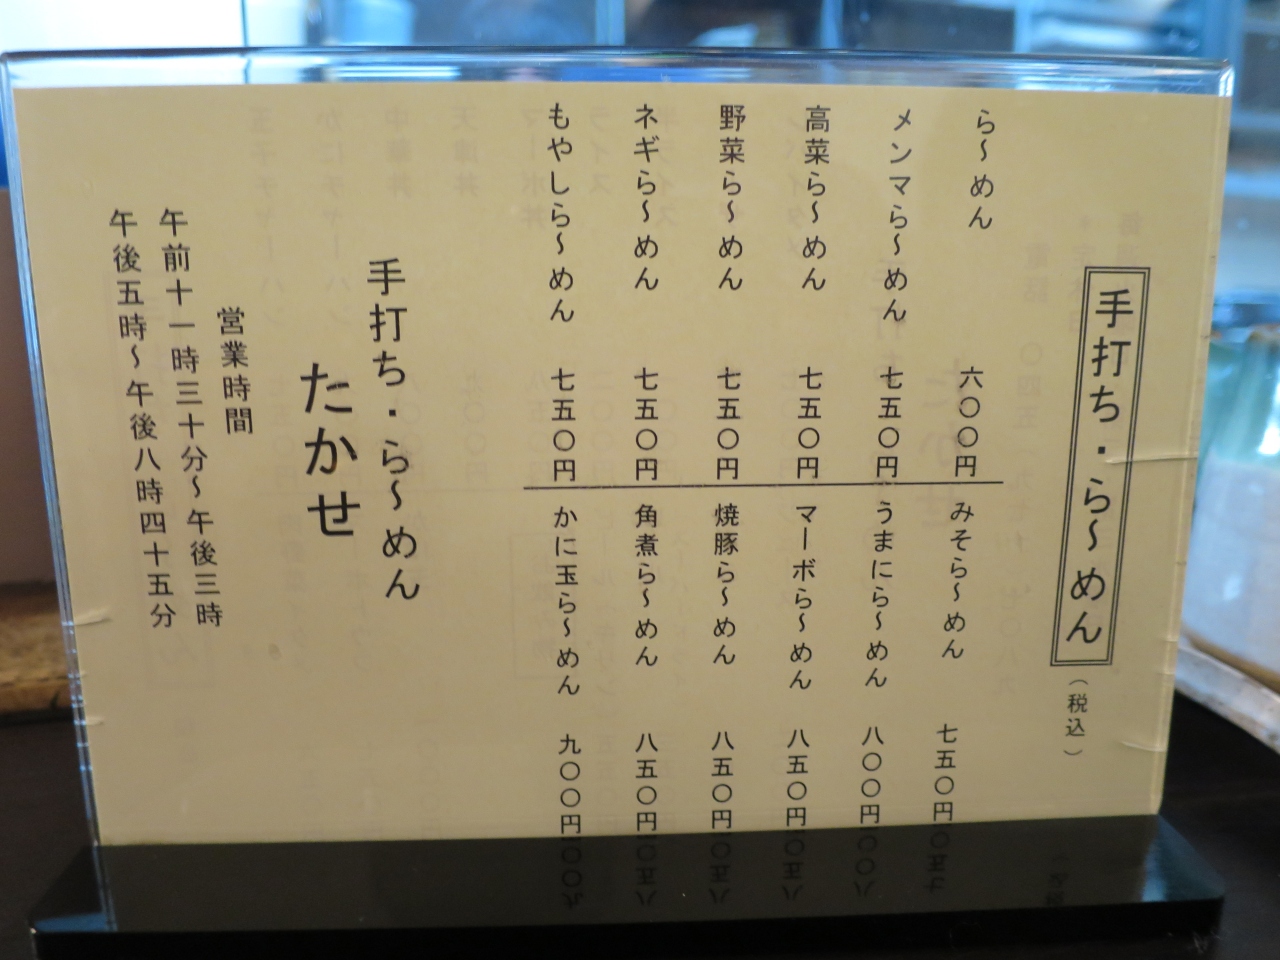 手打ち・ら～めん
（税込）
ら～めん 六〇〇円
メンマら～めん 七五〇円
高菜ら～めん 七五〇円
野菜ら～めん 七五〇円
ネギら～めん 七五〇円
もやしら～めん 七五〇円
みそら～めん 七五〇円
うまにら～めん 八〇〇円
マーボら～めん 八五〇円
焼豚ら～めん 八五〇円
角煮ら～めん 八五〇円
かに玉ら～めん 九〇〇円
手打ち・ら～めん
たかせ
営業時間
午前十一時三十分～午後三時
午後五時～午後八時四十五分